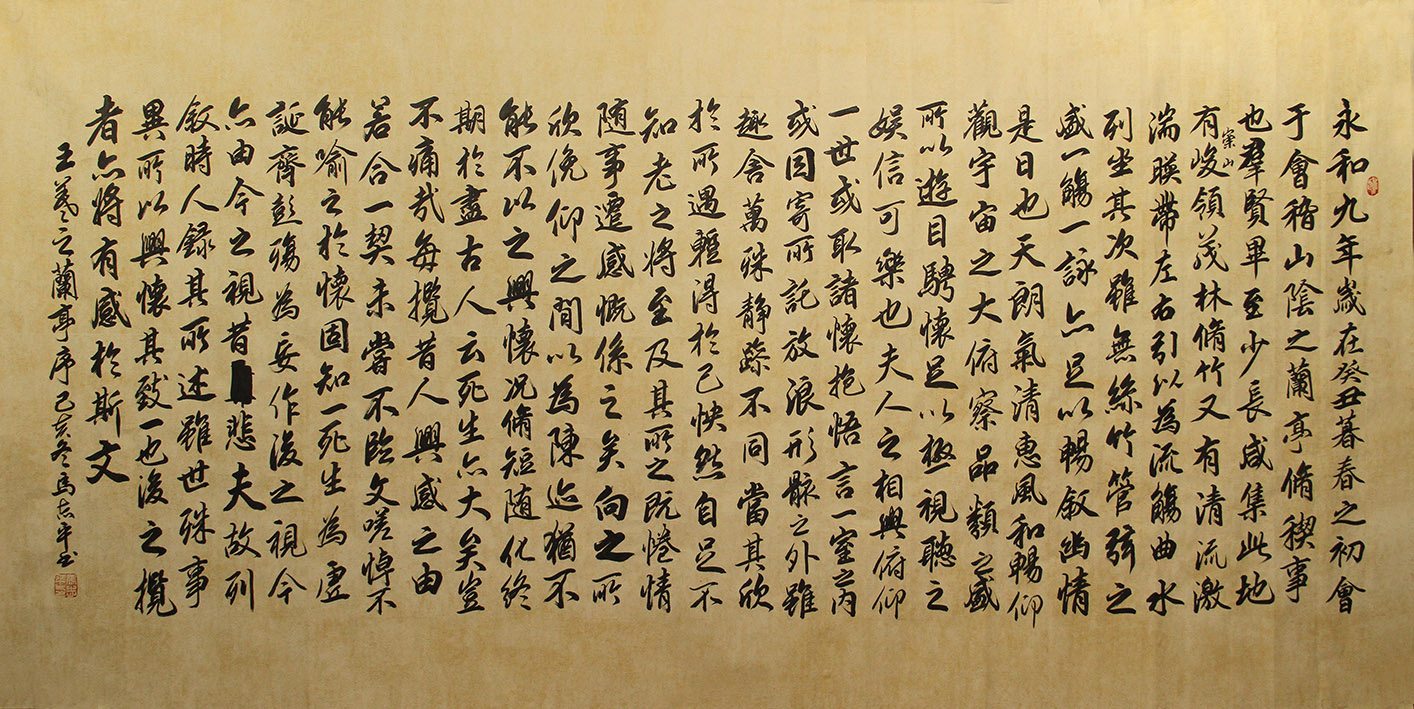 永和九年歲在癸丑暮春之初會
于會稽山陰之蘭亭脩稧事
也羣賢畢至少長咸集此地
有崇山峻領茂林脩竹又有清流激
湍暎帶左右引以為流觴曲水
列坐其次雖無絲竹管弦之
盛一觴一詠亦足以暢敘幽情
是日也天朗氣清惠風和暢仰
觀宇宙之大俯察品類之盛
所以遊目騁懷足以極視聽之
娛信可樂也夫人之相與俯仰
一世或取諸懷抱悟言一室之內
或因寄所託放浪形骸之外雖
趣舍萬殊靜躁不同當其欣
於所遇蹔得於己怏然自足不
知老之將至及其所之既惓情
隨事遷感慨係之矣向之所
欣俛仰之間以為陳迹猶不
能不以之興懷況脩短隨化終
期於盡古人云死生亦大矣豈
不痛哉每攬昔人興感之由
若合一契未嘗不臨文嗟悼不
能喻之於懷固知一死生為虛
誕齊彭殤為妄作後之視今
亦由今之視昔悲夫故列
敘時人錄其所述雖世殊事
異所以興懷其致一也後之攬
者亦將有感於斯文
王羲之蘭亭序己亥冬馬志平書